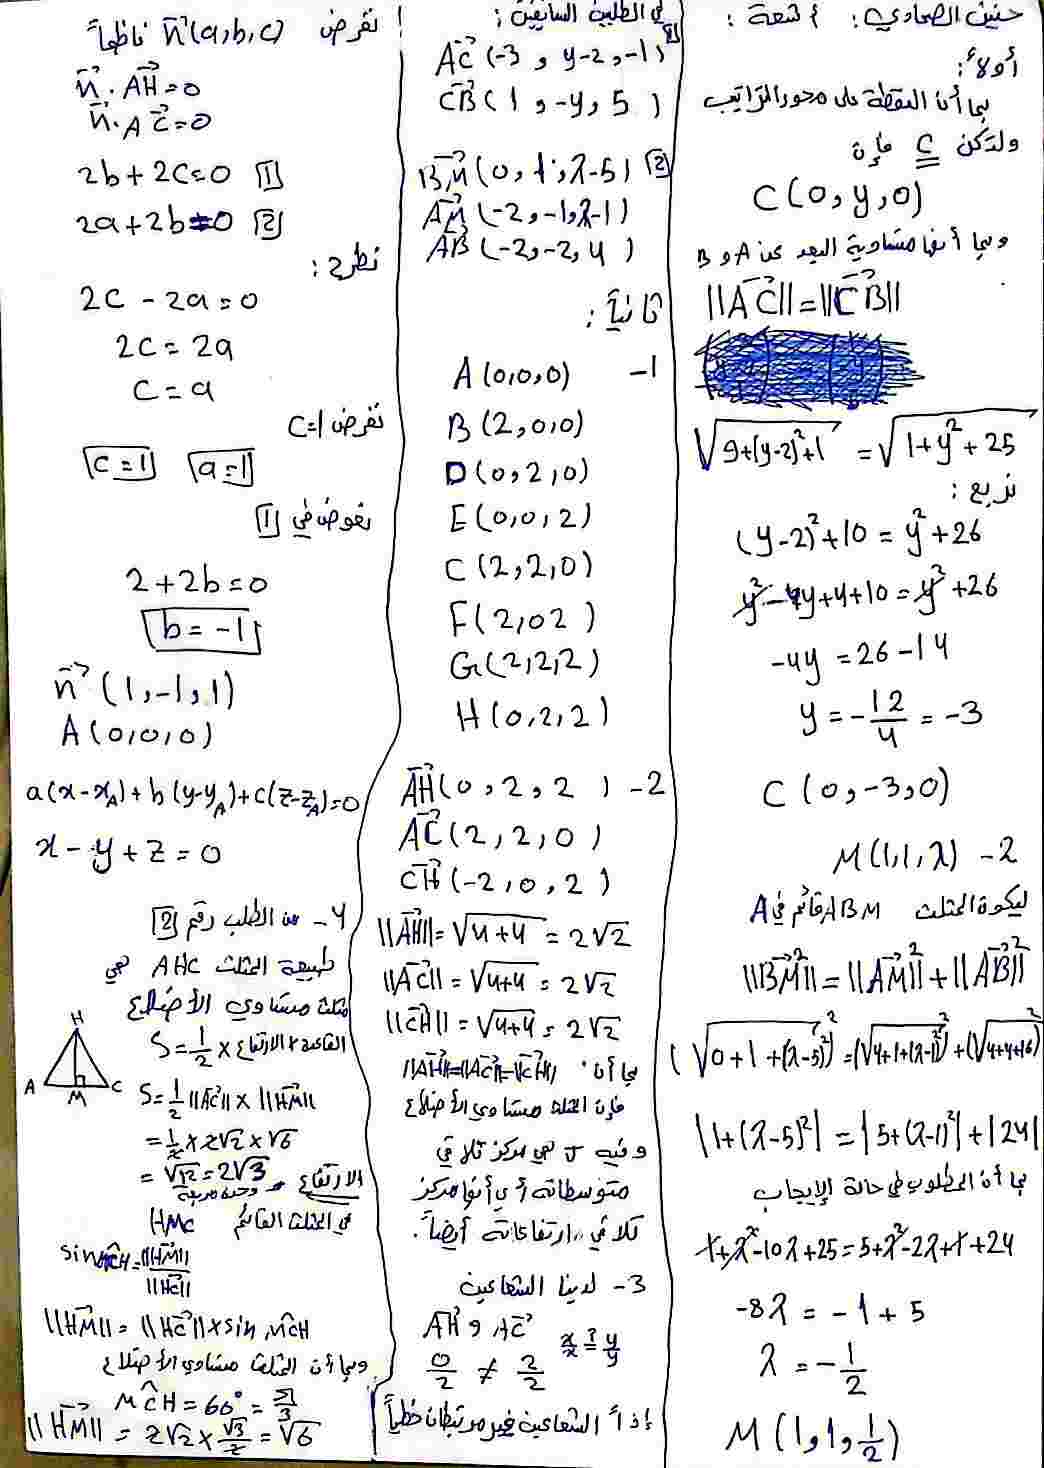 حنين الصمادي: 4 شعبة:
أولاً:
بما أن النقطة على محور التراتيب
ولتكن C فإن
C(0,y,0)
وبما أنها متساوية البعد عن A و B
||AC|| = ||CB||
√9+(y-2)²+1 = √1+y²+25
نربع:
(y-2)²+10 = y²+26
y²-4y+4+10 = y²+26
-4y = 26-14
y = -12/4 = -3
C(0,-3,0)
2- M(1,1,λ)
ليكون المثلث ABM قائم في A
||BM||² = ||AM||² + ||AB||²
(√0+1+(λ-5)²)² = (√4+1+(λ-1)²)² + (√4+4+16)²
|1+(λ-5)²| = |5+(λ-1)²|+|24|
بما أن المطلوب في حالة الإيجاب
1+λ²-10λ+25 = 5+λ²-2λ+1+24
-8λ = -1+5
λ = -1/2
M(1,1,1/2)
في الطلبين السابقين:
AC(-3, y-2, -1) [1]
CB(1, -y, 5)
BM(0, 1, λ-5) [2]
AM(-2, -1, λ-1)
AB(-2, -2, 4)
ثانياً:
1- A(0,0,0)
B(2,0,0)
D(0,2,0)
E(0,0,2)
C(2,2,0)
F(2,02)
G(2,2,2)
H(0,2,2)
2- AH(0,2,2)
AC(2,2,0)
CH(-2,0,2)
||AH|| = √4+4 = 2√2
||AC|| = √4+4 = 2√2
||CH|| = √4+4 = 2√2
بما أن ||AH||=||AC||=||CH||
فإن المثلث متساوي الأضلاع
وفيه J هي مركز تلاقي
متوسطاته أي أنها مركز
تلاقي ارتفاعاته أيضاً.
3- لدينا الشعاعين
AH و AC x/x ≟ y/y
0/2 ≠ 2/2
إذاً الشعاعين غير مرتبطان خطياً
نفرض n(a,b,c) ناظماً
n.AH=0
n.AC=0
2b+2c=0 [1]
2a+2b=0 [2]
نطرح:
2c-2a=0
2c=2a
c=a
نفرض c=1
c=1 a=1
نعوض في [1]
2+2b=0
b=-1
n(1,-1,1)
A(0,0,0)
a(x-xA)+b(y-yA)+c(z-zA)=0
x-y+z=0
4- من الطلب رقم [2]
طبيعة المثلث AHC هي
مثلث متساوي الأضلاع
H
A M C
S=1/2 × القاعدة × الارتفاع
S=1/2 ||AC|| × ||HM||
=1/2 × 2√2 × √6
=√12=2√3 وحدة مربعة
الارتفاع
في المثلث القائم HMC
sin MCH = ||HM||/||HC||
||HM|| = ||HC|| × sin MCH
وبما أن المثلث متساوي الأضلاع
MCH = 60° = π/3
||HM|| = 2√2 × √3/2 = √6